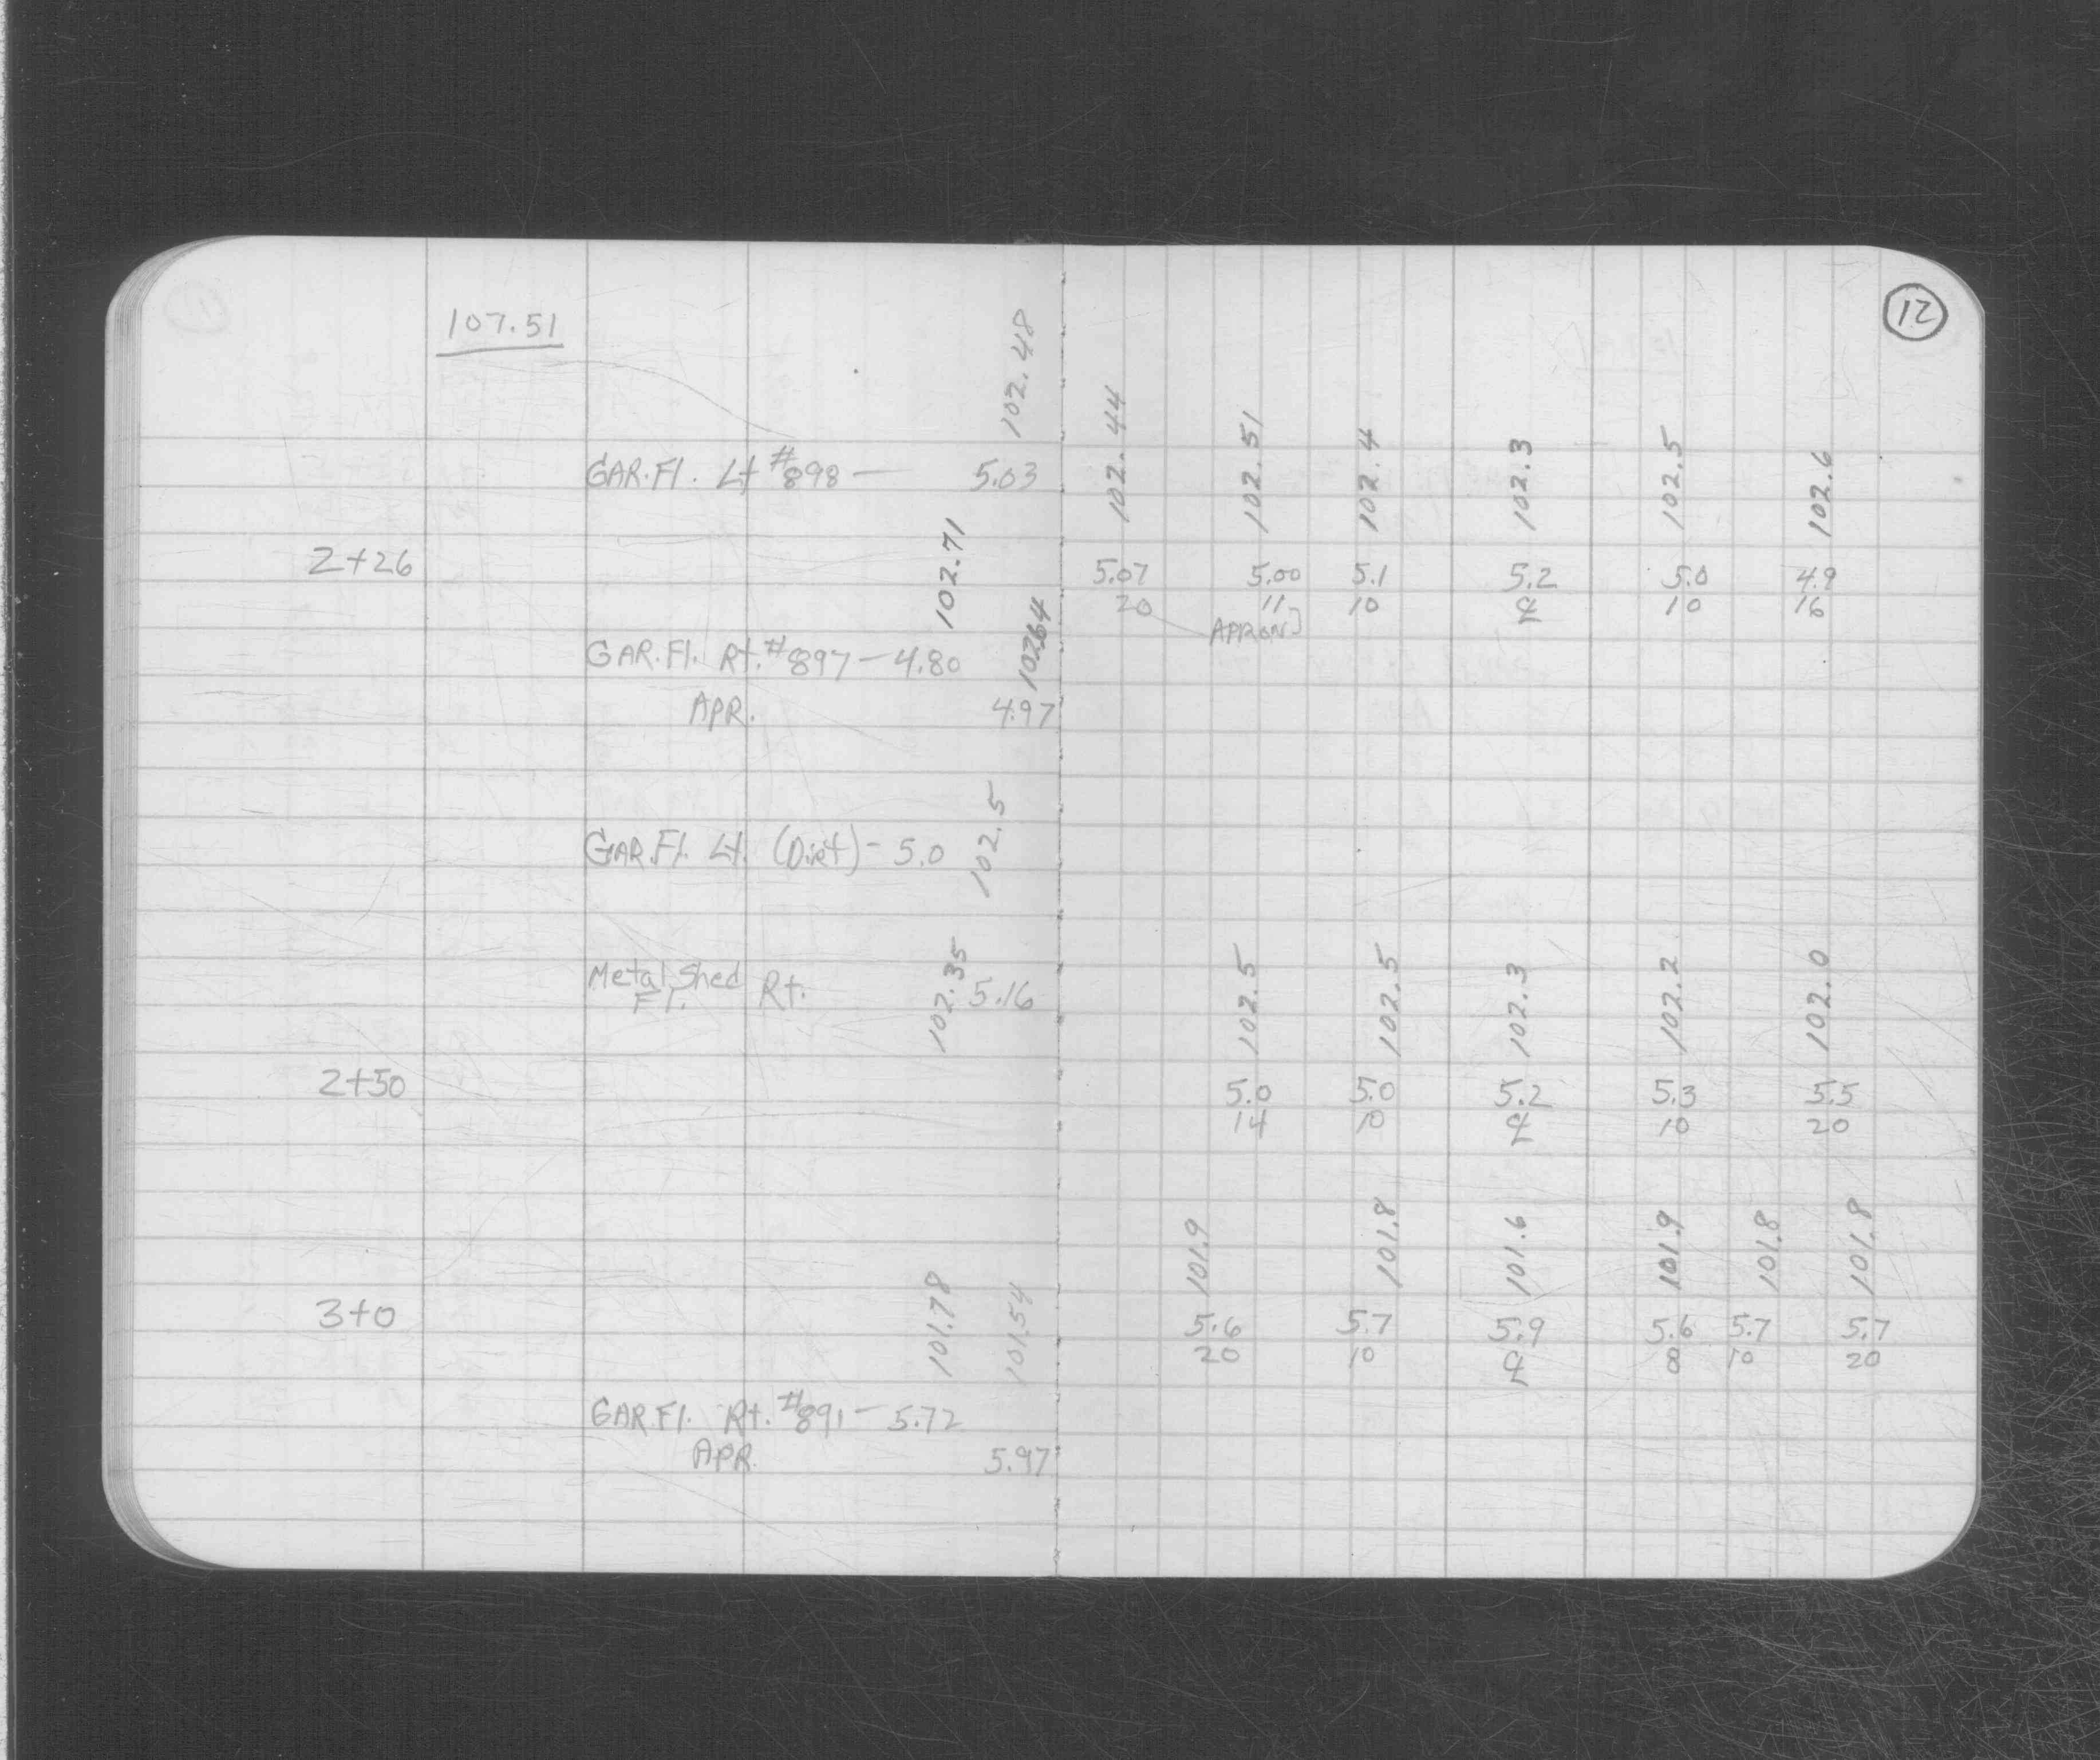 12
107.51
102.48
GAR.Fl. Lt #898 — 5.03
102.44 102.51 102.4 102.3 102.5 102.6
2+26 5.07 5.00 5.1 5.2 5.0 4.9
20 11 10 ℄ 10 16
APRON
102.71 102.64
GAR.Fl. Rt. #897 - 4.80
APR. 4.97
102.5
GAR.Fl. Lt. (Dirt) - 5.0
102.35
Metal Shed Rt. 5.16
Fl.
102.5 102.5 102.3 102.2 102.0
2+50 5.0 5.0 5.2 5.3 5.5
14 10 ℄ 10 20
101.9 101.8 101.6 101.9 101.8 101.8
3+0 5.6 5.7 5.9 5.6 5.7 5.7
20 10 ℄ 8 10 20
101.78 101.54
GAR Fl. Rt. #891 - 5.72
APR. 5.97